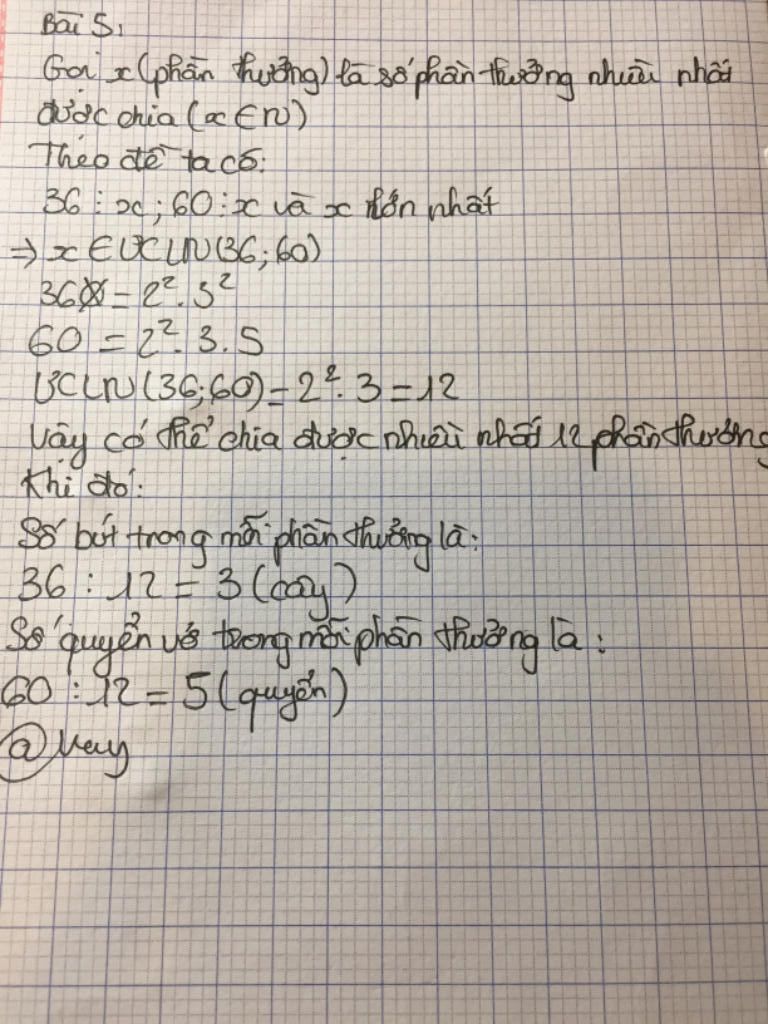 Bài 5:
Gọi x (phần thưởng) là số phần thưởng nhiều nhất
được chia (x ∈ N)
Theo đề ta có:
36 ⋮ x ; 60 ⋮ x và x lớn nhất
⇒ x ∈ ƯCLN(36; 60)
36 = 2². 3²
60 = 2². 3. 5
ƯCLN(36; 60) = 2². 3 = 12
Vậy có thể chia được nhiều nhất 12 phần thưởng
Khi đó:
Số bút trong mỗi phần thưởng là:
36 : 12 = 3 (cây)
Số quyển vở trong mỗi phần thưởng là:
60 : 12 = 5 (quyển)